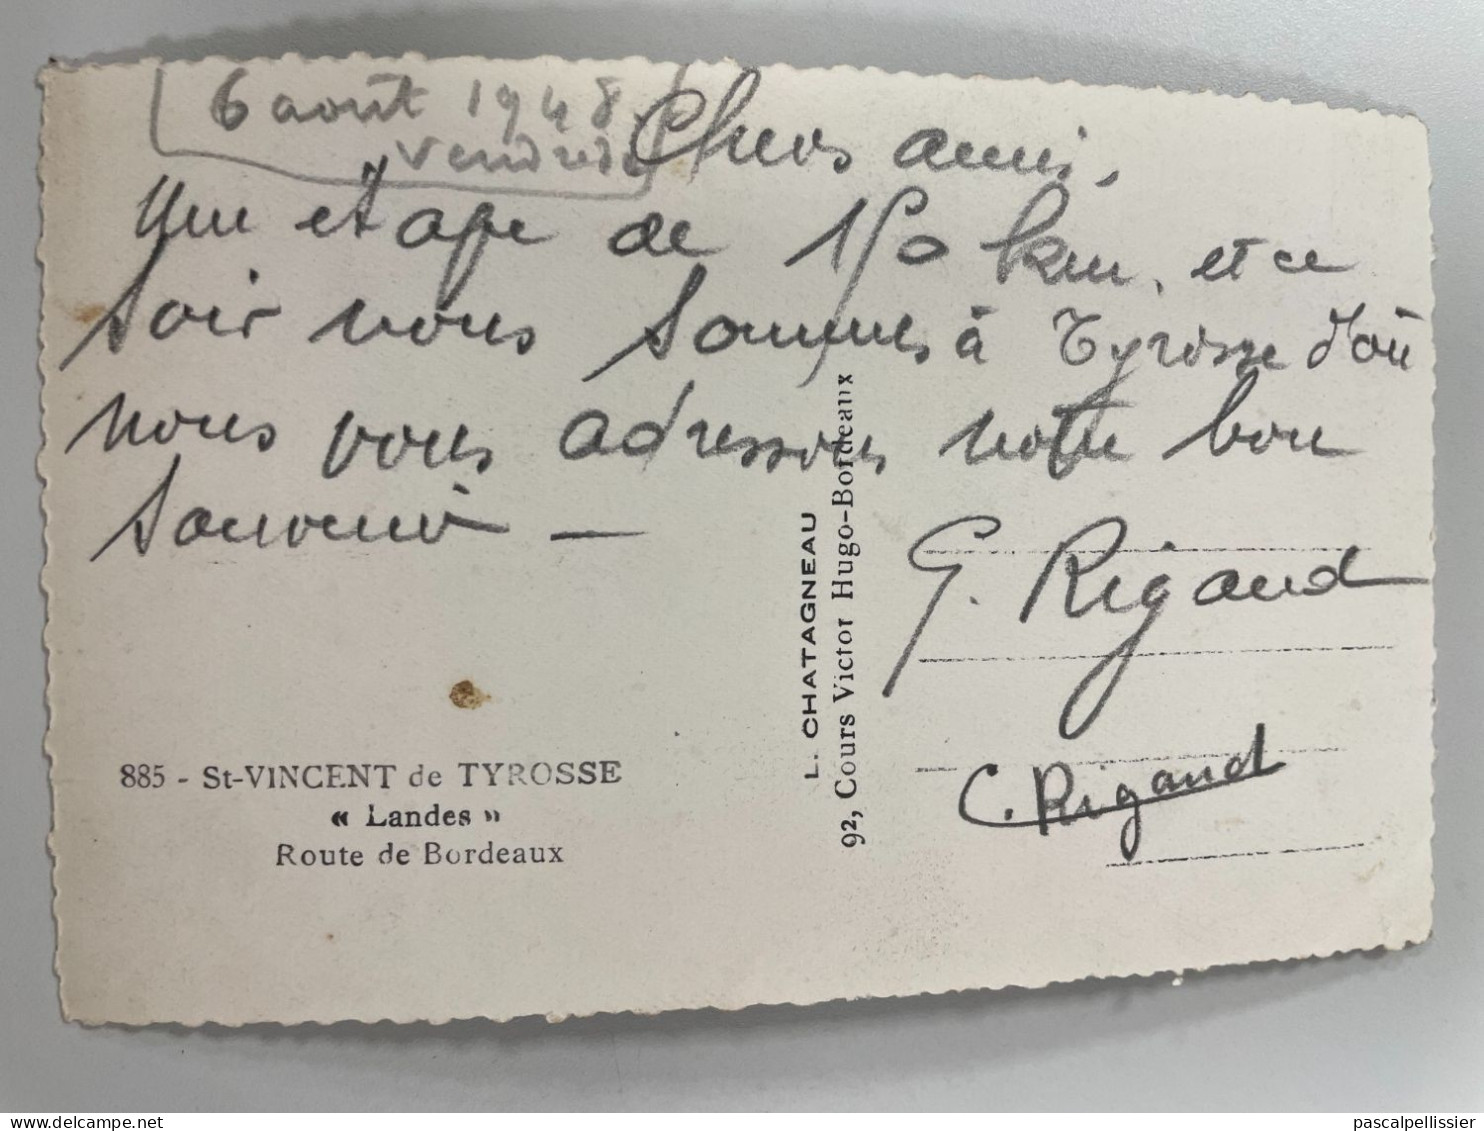 6 août 1948
vendredi
Chers amis,
Une étape de 150 km, et ce
soir nous sommes à Tyrosse d'où
nous vous adressons notre bon
souvenir —
G. Rigaud
C. Rigaud
L. CHATAGNEAU
92, Cours Victor Hugo-Bordeaux
885 - St-VINCENT de TYROSSE
« Landes »
Route de Bordeaux
pascalpellissier